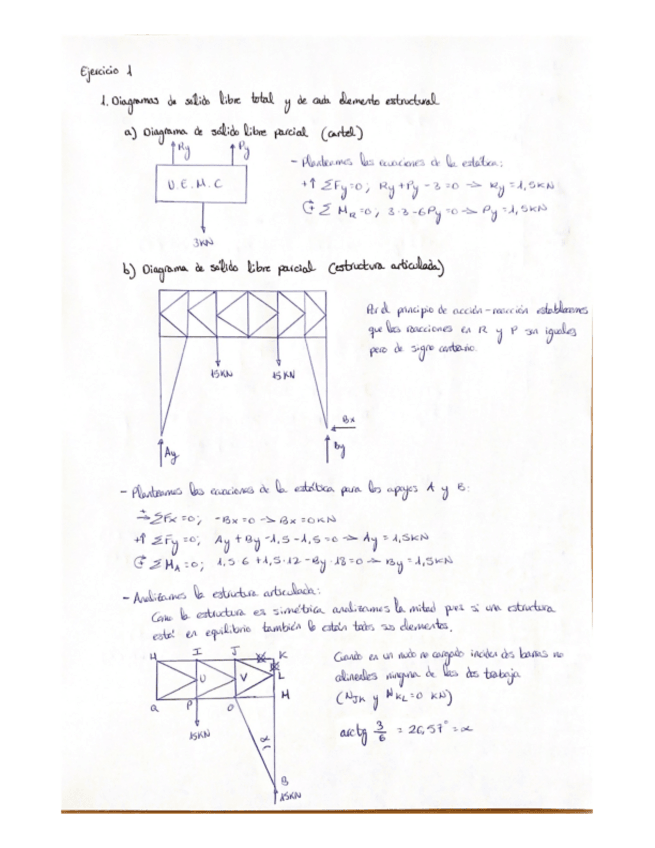 Ejercicio 1
1. Diagramas de sólido libre total y de cada elemento estructural
a) Diagrama de sólido libre parcial (cartel)
Ry Py
U.E.M.C
3KN
- Planteamos las ecuaciones de la estática:
+↑ ΣFy=0; Ry+Py-3=0 → Ry=1,5KN
Σ MR=0; 3·3-6Py=0 → Py=1,5KN
b) Diagrama de sólido libre parcial (estructura articulada)
Por el principio de acción-reacción establecemos
que las reacciones en R y P son iguales
pero de signo contrario.
15KN 15KN
Bx
Ay By
- Planteamos las ecuaciones de la estática para los apoyos A y B:
ΣFx=0; -Bx=0 → Bx=0KN
+↑ ΣFy=0; Ay+By-1,5-1,5=0 → Ay=1,5KN
Σ MA=0; 1,5·6+1,5·12-By·18=0 → By=1,5KN
- Analizamos la estructura articulada:
Como la estructura es simétrica analizamos la mitad pues si una estructura
está en equilibrio también lo están todos sus elementos.
H I J K
U V L
Q P O M
15KN
α
B
15KN
Cuando en un nudo no cargado inciden dos barras no
alineadas ninguna de las dos trabaja
(NJK y NKL=0 KN)
arctg 3/6 = 26,57° = α